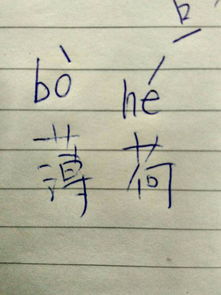 bò hé
薄荷